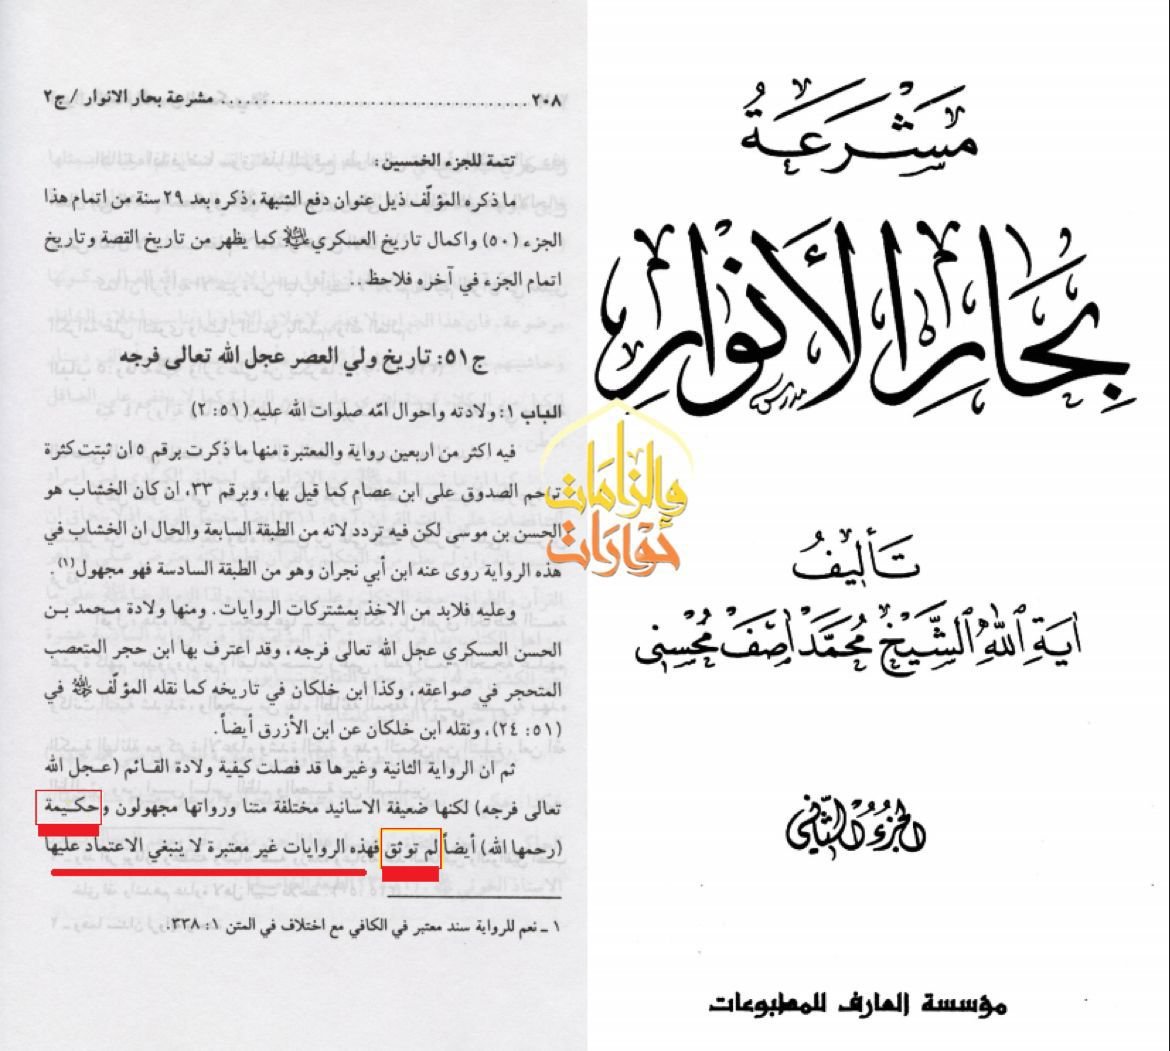 مشرعة بحار الانوار / ج٢ ................................ ٢٠٨
تتمة للجزء الخمسين:
ما ذكره المؤلّف ذيل عنوان دفع الشبهة، ذكره بعد ٢٩ سنة من اتمام هذا
الجزء (٥٠) واكمال تاريخ العسكري كما يظهر من تاريخ القصة وتاريخ
اتمام الجزء في آخره فلاحظ..
ج٥١: تاريخ ولي العصر عجل الله تعالى فرجه
الباب ١: ولادته واحوال امّه صلوات الله عليه (٥١: ٢)
فيه اكثر من اربعين رواية والمعتبرة منها ما ذكرت برقم ٥ ان ثبتت كثرة
ترحم الصدوق على ابن عصام كما قيل بها، وبرقم ٣٣، ان كان الخشاب هو
الحسن بن موسى لكن فيه تردد لانه من الطبقة السابعة والحال ان الخشاب في
هذه الرواية روى عنه ابن أبي نجران وهو من الطبقة السادسة فهو مجهول(١)
وعليه فلابد من الاخذ بمشتركات الروايات. ومنها ولادة محمد بن
الحسن العسكري عجل الله تعالى فرجه، وقد اعترف بها ابن حجر المتعصب
المتحجر في صواعقه، وكذا ابن خلكان في تاريخه كما نقله المؤلّف في
(٥١: ٢٤)، ونقله ابن خلكان عن ابن الأزرق أيضاً.
ثم ان الرواية الثانية وغيرها قد فصلت كيفية ولادة القائم (عجل الله
تعالى فرجه) لكنها ضعيفة الاسانيد مختلفة متنا ورواتها مجهولون وحكيمة
(رحمها الله) أيضاً لم توثق فهذه الروايات غير معتبرة لا ينبغي الاعتماد عليها
١ ـ نعم للرواية سند معتبر في الكافي مع اختلاف في المتن ١: ٣٣٨.
مشرعة
بحار الأنوار
تأليف
آية الله الشيخ محمد آصف محسني
الجزء الثاني
مؤسسة العارف للمطبوعات
والزامات
حوارات